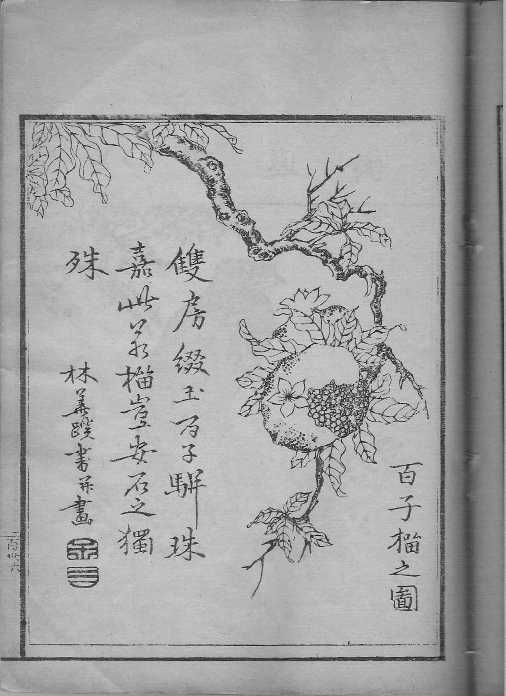 百子榴之圖
雙房綴玉百子駢珠
嘉此若榴豈安石之獨
殊
林 書并畫
二百卅六